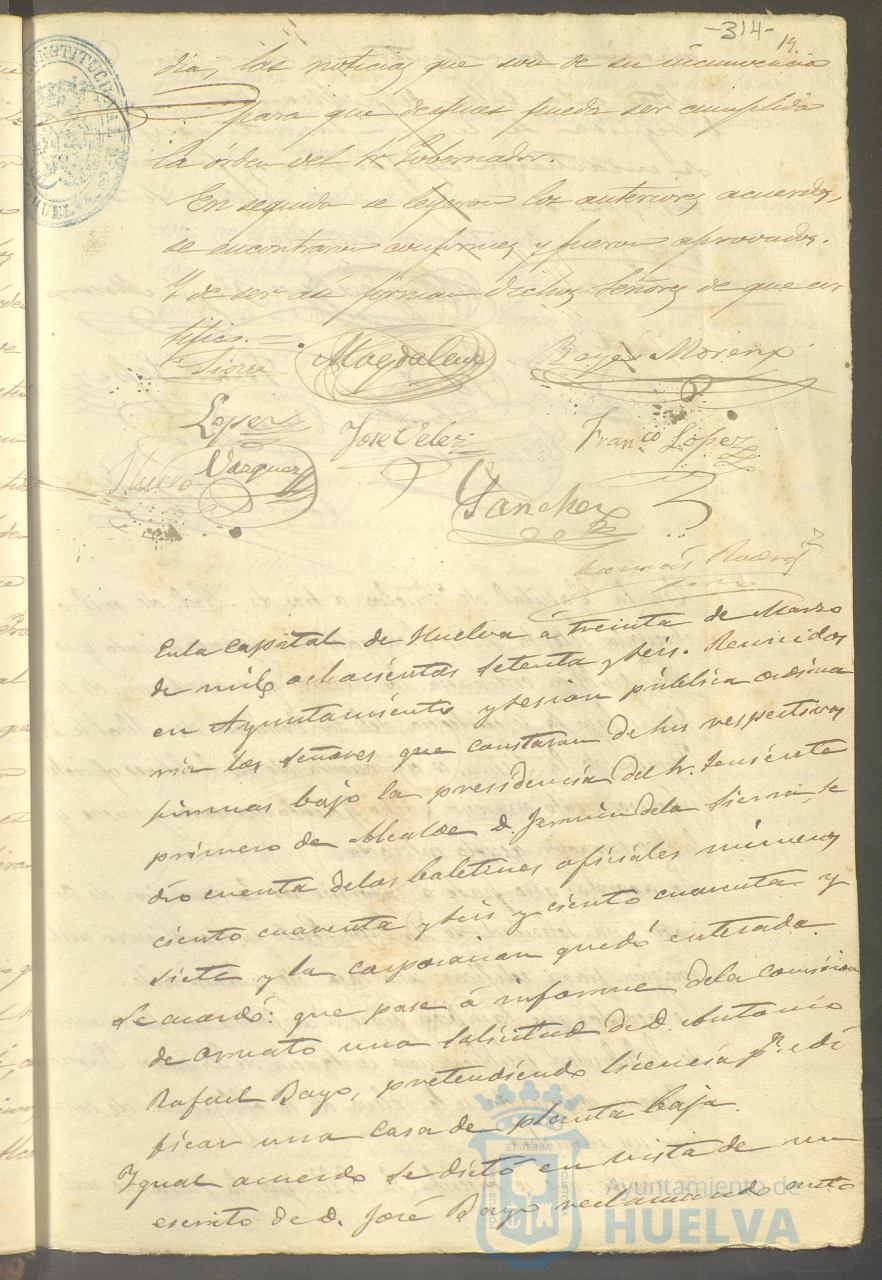 -314- 19.
dia, las noticias que son de su incumvencia
para que despues pueda ser cumplida
la órden del Sr. Gobernador.
En seguida se leyeron los anteriores acuerdos,
se encontraron conformes y fueron aprovados.
Y de ser asi firman dichos Señores de que cer
tifico. =
Sierra Magdalena Moreno
Lopez Jose Velez Franco Lopez
Vazquez
Sanchez
En la capital de Huelva á treinta de Marzo
de mil ochocientos setenta y seis. Reunidos
en Ayuntamiento y sesion pública ordina
ria los Señores que constaran de sus respectivas
firmas bajo la presidencia del Sr. Teniente
primero de Alcalde D. Fermin de la Sierra, se
dio cuenta de los boletines oficiales números
ciento cuarenta y seis y ciento cuarenta y
siete y la corporacion quedó enterada.
Se acordó: que pase á informe de la comision
de ornato una solicitud de D. Antonio
Rafael Bayo, pretendiendo licencia pa. edi
ficar una casa de planta baja.
Igual acuerdo se dictó en vista de un
escrito de D. José Bayo reclamando
Ayuntamiento de
HUELVA